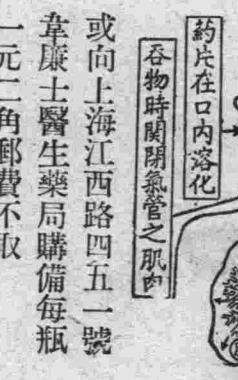 藥片在口內溶化
吞物時関閉氣管之肌肉
或向上海江西路四五一號
韋廉士醫生藥局購備每瓶
一元二角郵費不取